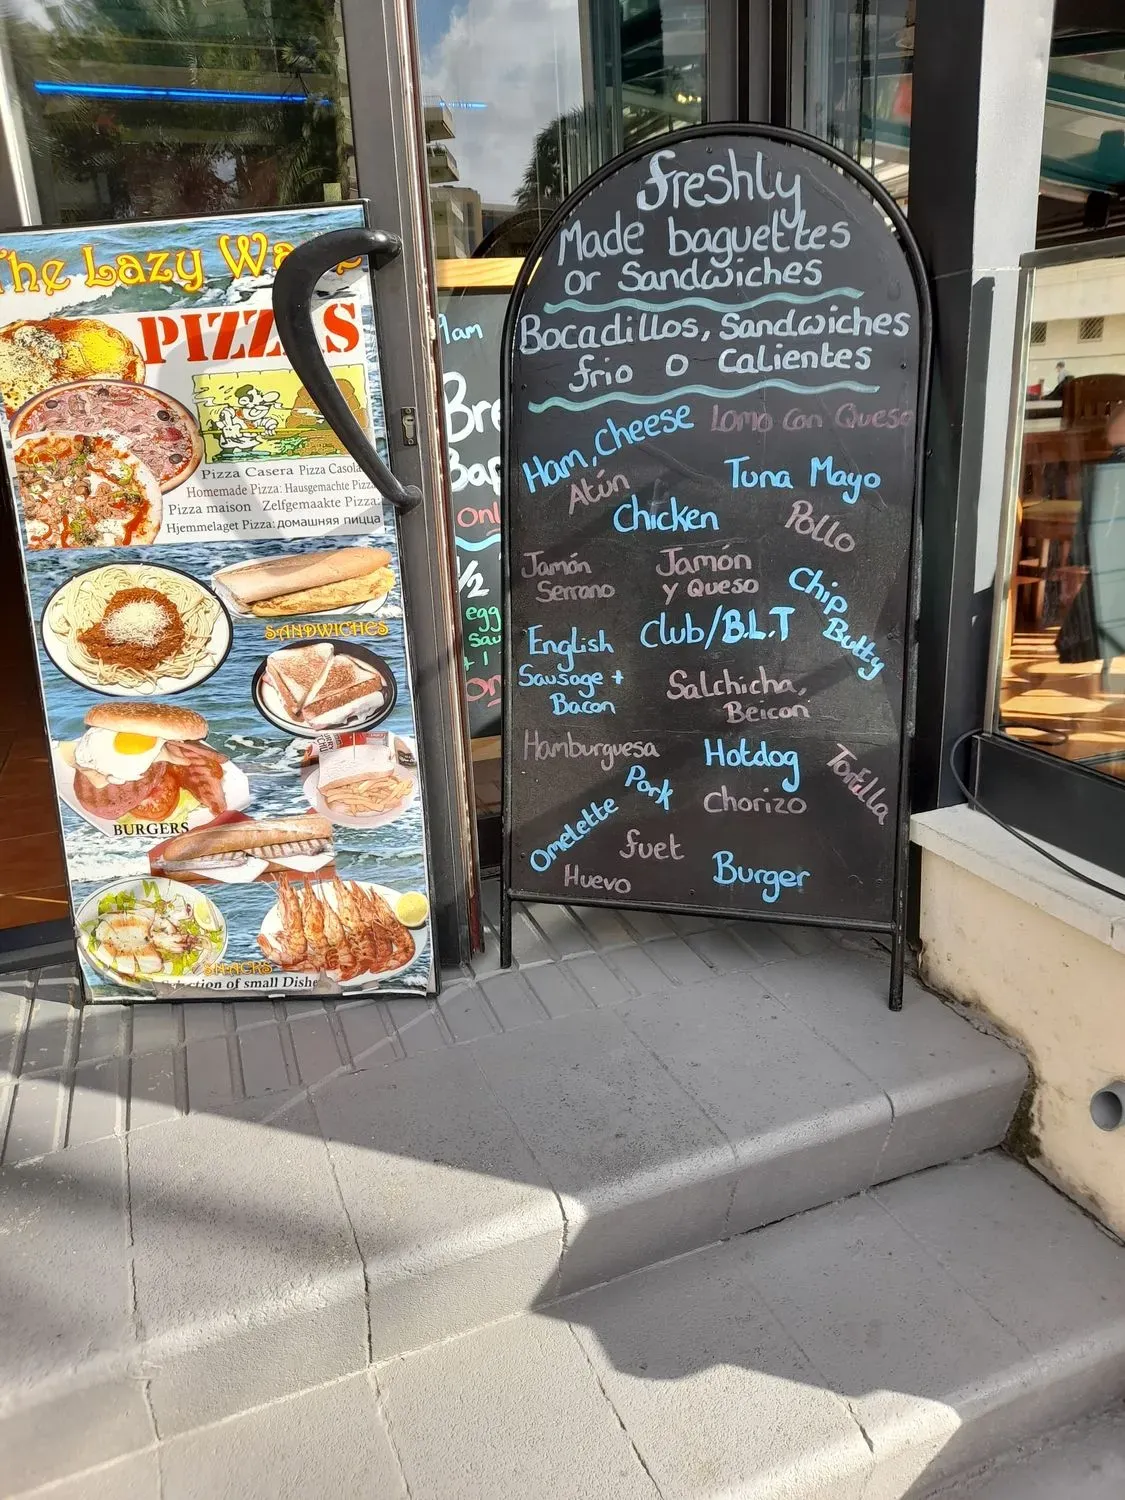 The Lazy
PIZZAS
Pizza Casera Pizza Casola
Homemade Pizza: Hausgemachte Pizza
Pizza maison Zelfgemaakte Pizza:
Hjemmelaget Pizza: домашняя пицца
SANDWICHES
BURGERS
SNACKS
of small Dishe
Ham
Bre
Bap
Onl
1/2
egg
Sau
+ 1
On
freshly
Made baguettes
or Sandwiches
Bocadillos, Sandwiches
frio o Calientes
Ham, Cheese
Lomo con Queso
Atún
Tuna Mayo
Chicken
Pollo
Jamón
Serrano
Jamón
y Queso
Chip
Butty
English
Sausage +
Bacon
Club/B.L.T
Salchicha,
Beicon
Hamburguesa
Hotdog
Tortilla
Pork
Chorizo
Omelette
fuet
Huevo
Burger